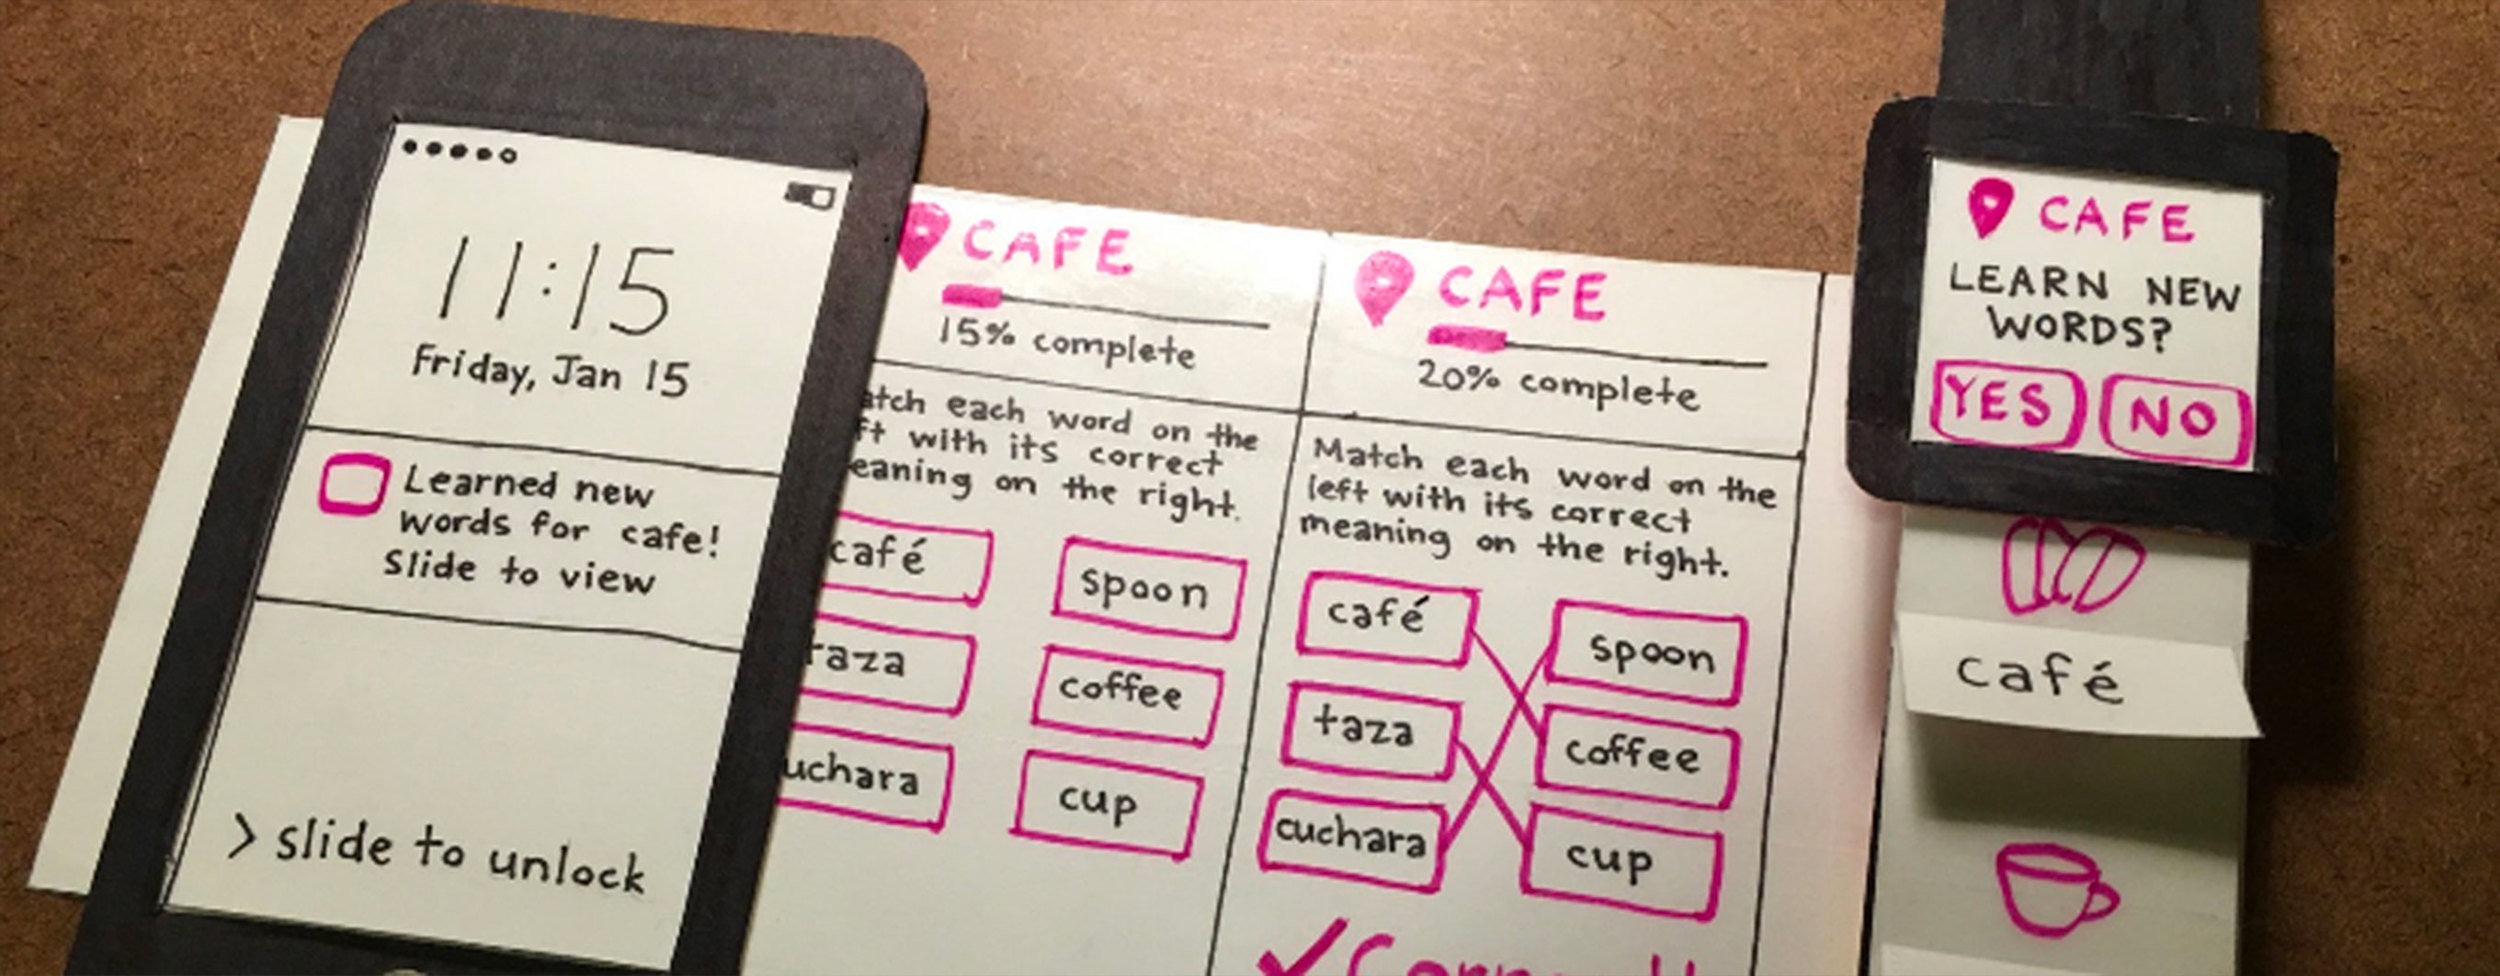 11:15
Friday, Jan 15
Learned new
words for cafe!
Slide to view
> slide to unlock
CAFE
15% complete
each word on the
with its correct
on the right.
café
spoon
coffee
cup
CAFE
20% complete
Match each word on the
left with its correct
meaning on the right.
café
spoon
taza
coffee
cuchara
cup
CAFE
LEARN NEW
WORDS?
YES NO
café